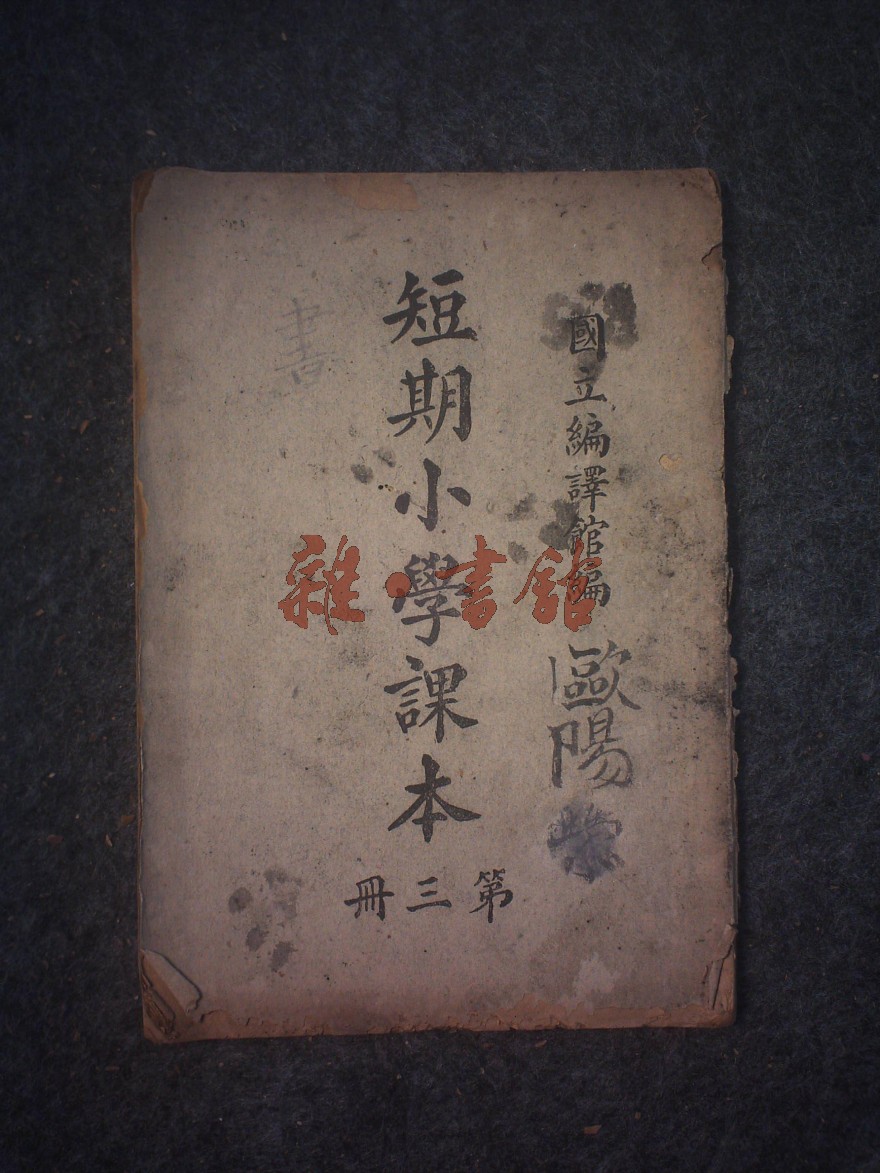 國立編譯館編
歐陽
短期小學課本
第三冊
書
雜·書館